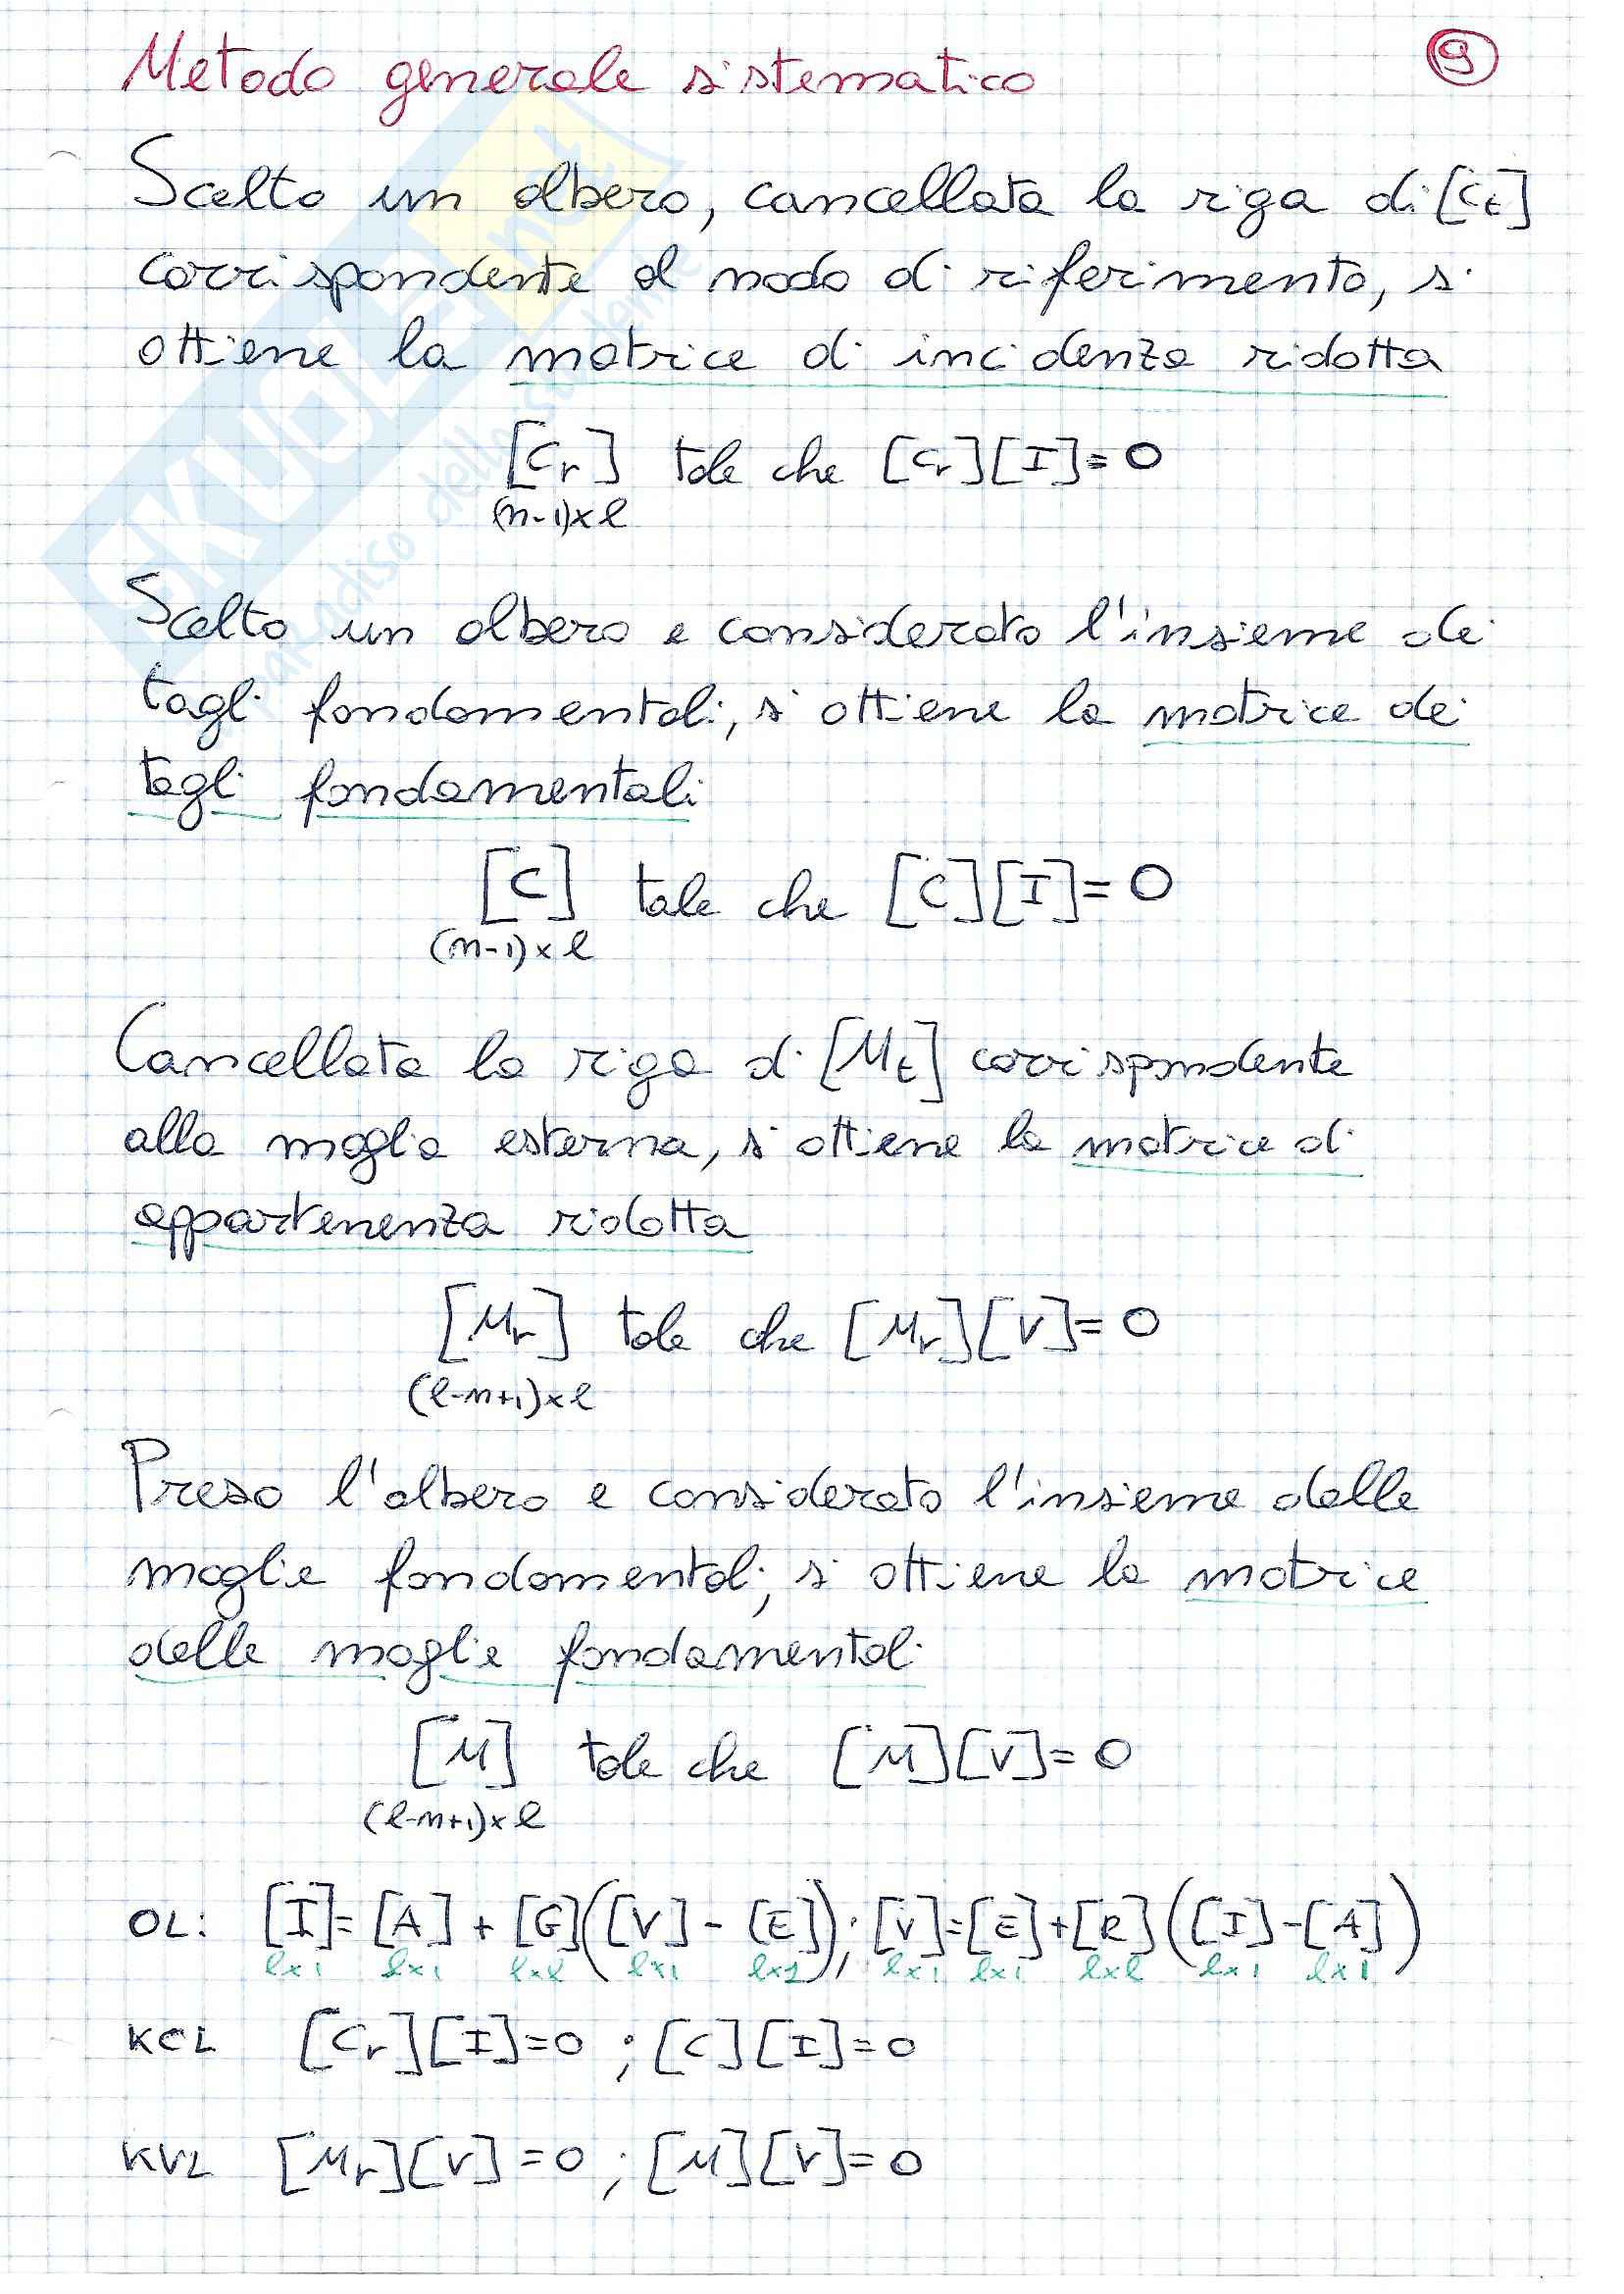 Metodo generale sistematico 9
Scelto un albero, cancellata la riga di [Ct]
corrispondente al nodo di riferimento, si
ottiene la matrice di incidenza ridotta
[Cr] tale che [Cr][I]=0
(n-1)×l
Scelto un albero e considerato l'insieme dei
tagli fondamentali, si ottiene la matrice dei
tagli fondamentali
[C] tale che [C][I]=0
(n-1)×l
Cancellata la riga di [Mt] corrispondente
alla maglia esterna, si ottiene la matrice di
appartenenza ridotta
[Mr] tale che [Mr][V]=0
(l-n+1)×l
Preso l'albero e considerato l'insieme delle
maglie fondamentali, si ottiene la matrice
delle maglie fondamentali
[M] tale che [M][V]=0
(l-n+1)×l
OL: [I]=[A]+[G]([V]-[E]); [V]=[E]+[R]([I]-[A])
l×1 l×1 l×l l×1 l×1 l×1 l×1 l×l l×1 l×1
KCL [Cr][I]=0 ; [C][I]=0
KVL [Mr][V]=0 ; [M][V]=0
SKUOLA.net
paradiso dello studente